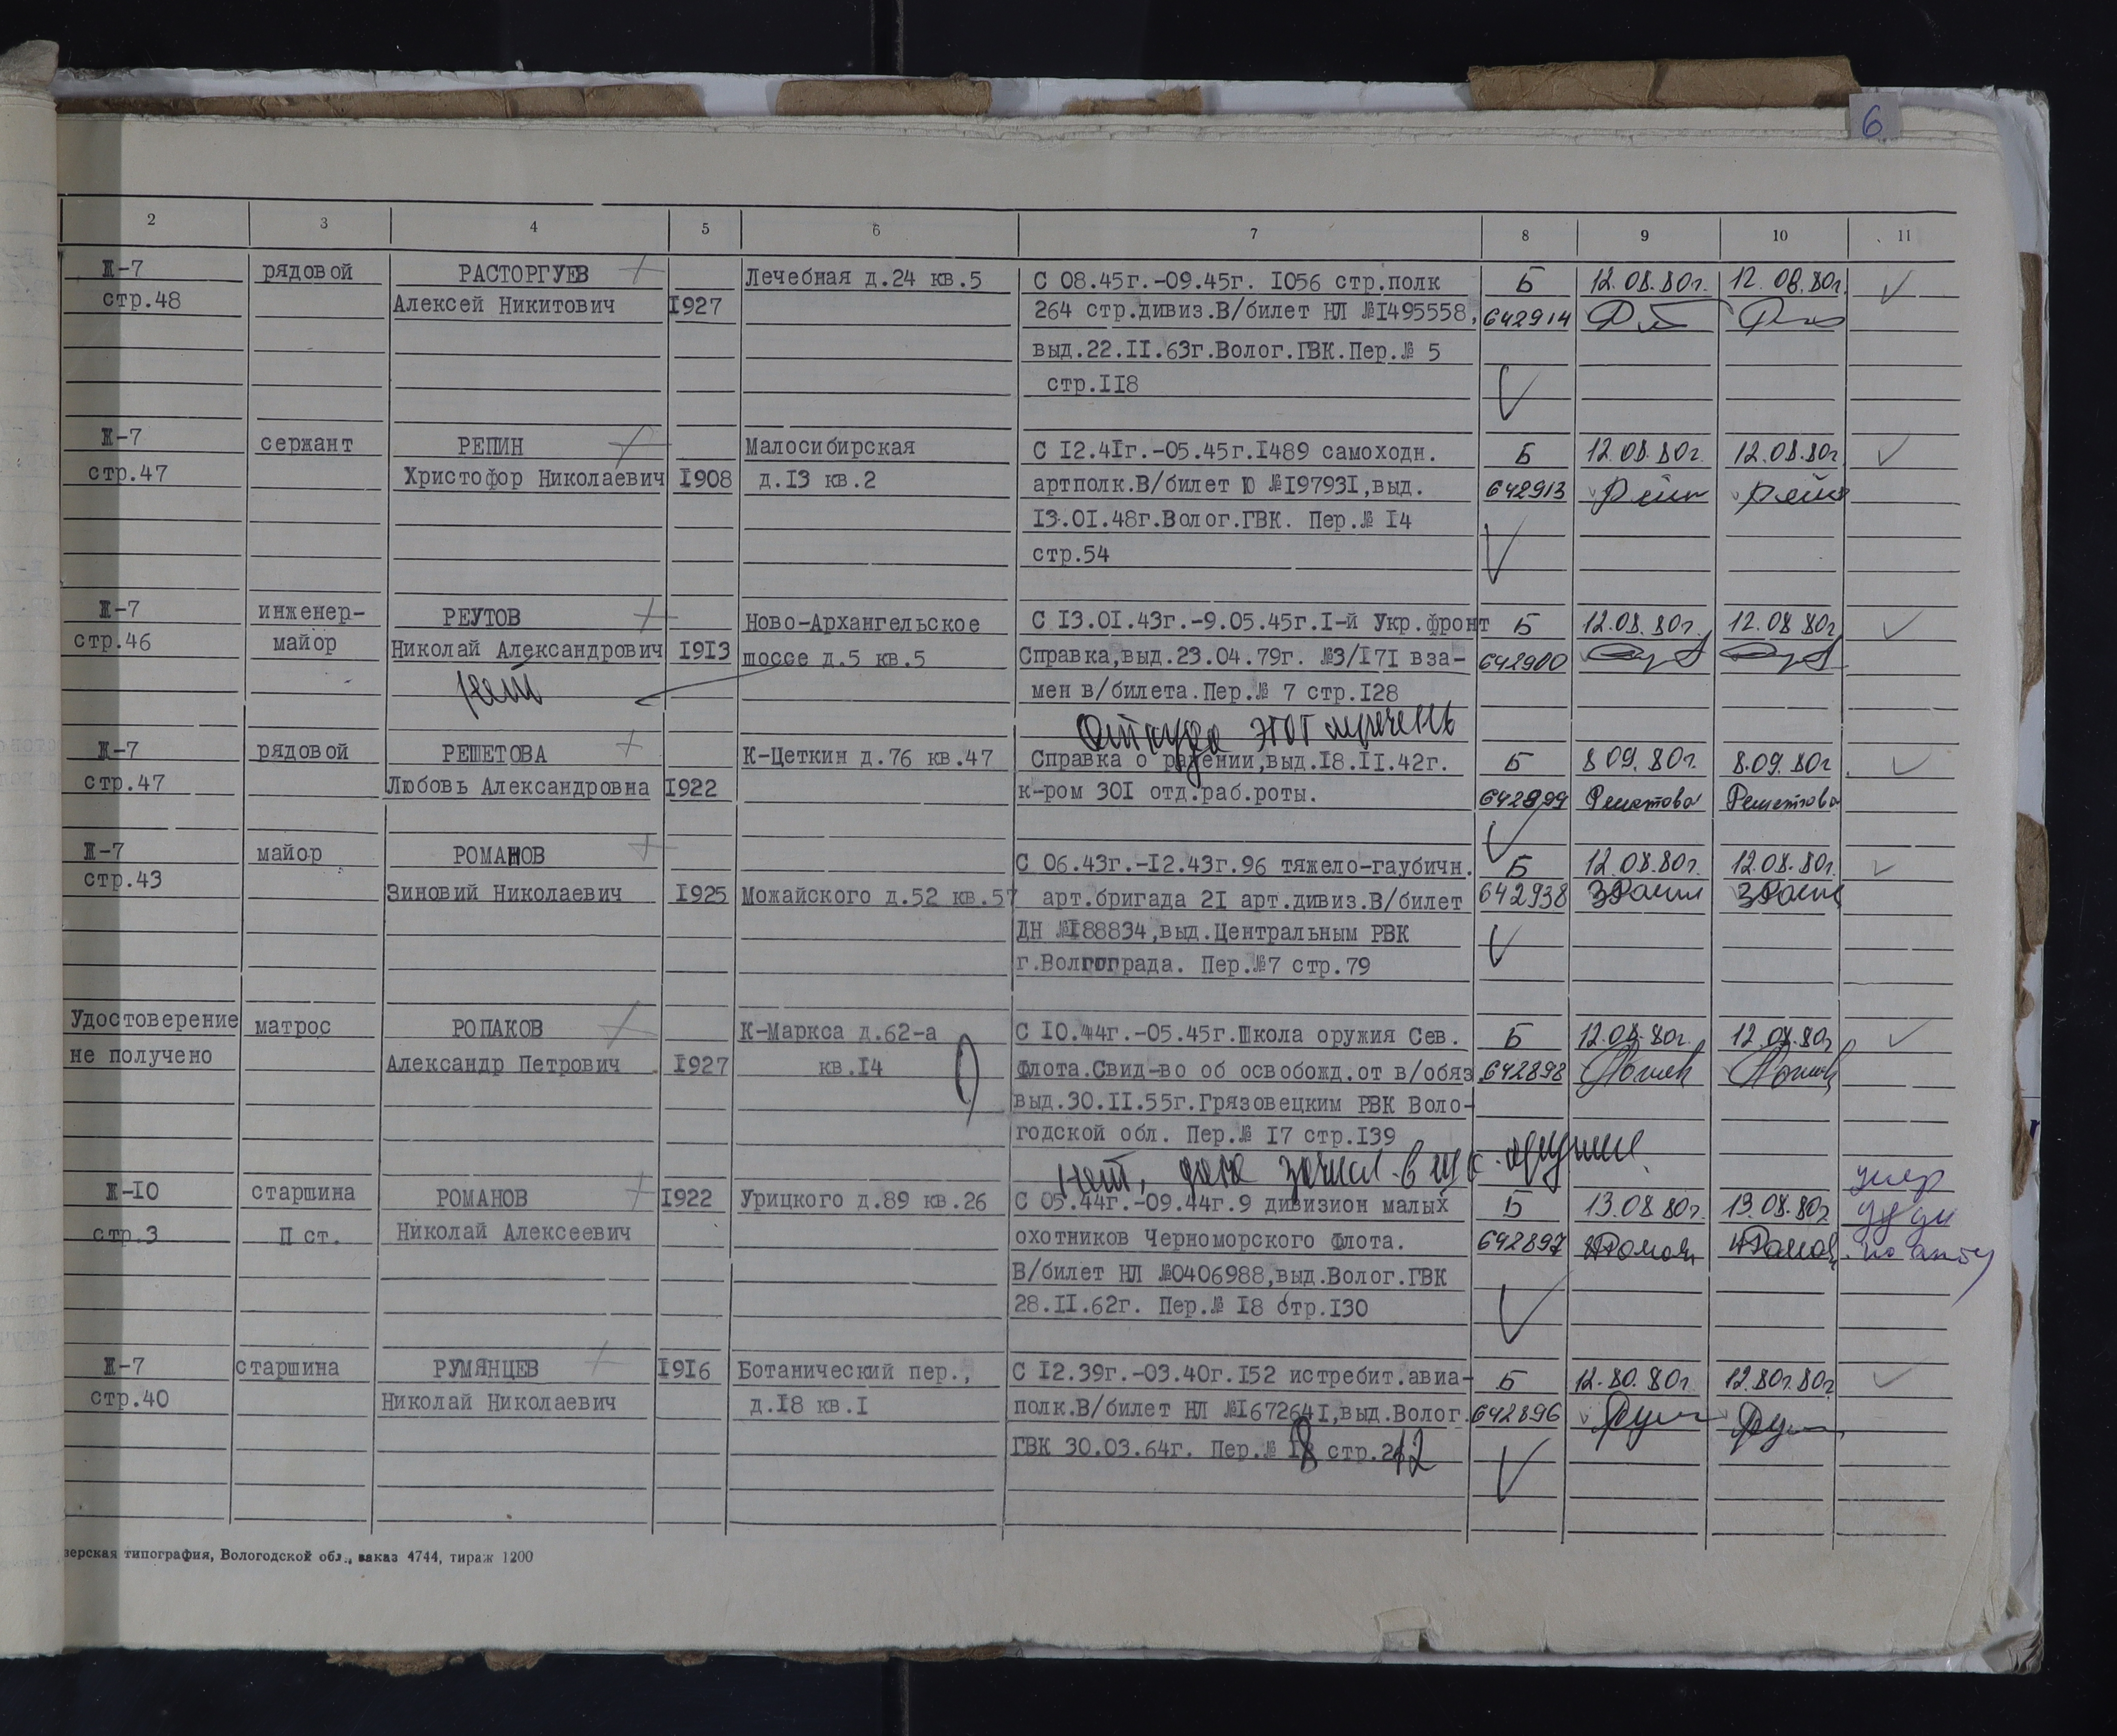 6
2 3 4 5 6 7 8 9 10 11
Ж-7 рядовой РАСТОРГУЕВ Лечебная д.24 кв.5 С 08.45г.-09.45г. I056 стр.полк Б 12.08.80г. 12.08.80г.
стр.48 Алексей Никитович I927 264 стр.дивиз.В/билет НЛ №I495558, 642914
выд.22.II.63г.Волог.ГВК.Пер.№ 5
стр.II8
Ж-7 сержант РЕПИН Малосибирская С I2.4Iг.-05.45г.I489 самоходн. Б 12.08.80г. 12.08.80г
стр.47 Христофор Николаевич I908 д.I3 кв.2 артполк.В/билет Ю №I9793I,выд. 642913
I3.0I.48г.Волог.ГВК. Пер.№ I4
стр.54
Ж-7 инженер- РЕУТОВ Ново-Архангельское С I3.0I.43г.-9.05.45г.I-й Укр.фронт Б 12.08.80г. 12.08 80г
стр.46 майор Николай Александрович I9I3 шоссе д.5 кв.5 Справка,выд.23.04.79г. №3/I7I вза- 642900
нет мен в/билета.Пер.№ 7 стр.I28
Откуда этот перечень
Ж-7 рядовой РЕШЕТОВА К-Цеткин д.76 кв.47 Справка о ранении,выд.I8.II.42г. Б 8 09. 80г. 8.09. 80г
стр.47 Любовь Александровна I922 к-ром 30I отд.раб.роты. 642899 Решетова Решетова
Ж-7 майор РОМАНОВ С 06.43г.-I2.43г.96 тяжело-гаубичн. Б 12.08.80г. 12.08.80г.
стр.43 Зиновий Николаевич I925 Можайского д.52 кв.57 арт.бригада 2I арт.дивиз.В/билет 642938
ДН №I88834,выд.Центральным РВК
г.Волгограда. Пер.№7 стр.79
Удостоверение матрос РОПАКОВ К-Маркса д.62-а С I0.44г.-05.45г.Школа оружия Сев. Б 12.08.80г. 12.08.80г
не получено Александр Петрович I927 кв.I4 Флота.Свид-во об освобожд.от в/обяз 642898
выд.30.II.55г.Грязовецким РВК Воло-
годской обл. Пер.№ I7 стр.I39
нет, дата зачисл. в
Ж-I0 старшина РОМАНОВ I922 Урицкого д.89 кв.26 С 05.44г.-09.44г.9 дивизион малых Б 13.08 80г. 13.08.80г умер
стр.3 П ст. Николай Алексеевич охотников Черноморского Флота. 642897
В/билет НЛ №0406988,выд.Волог.ГВК
28.II.62г. Пер.№ I8 стр.I30
Ж-7 старшина РУМЯНЦЕВ I9I6 Ботанический пер., С I2.39г.-03.40г.I52 истребит.авиа- Б 12.80.80г. 12.80г.80г
стр.40 Николай Николаевич д.I8 кв.I полк.В/билет НЛ №I67264I,выд.Волог. 642896
ГВК 30.03.64г. Пер.№ I8 стр.212
зерская типография, Вологодской обл., заказ 4744, тираж 1200